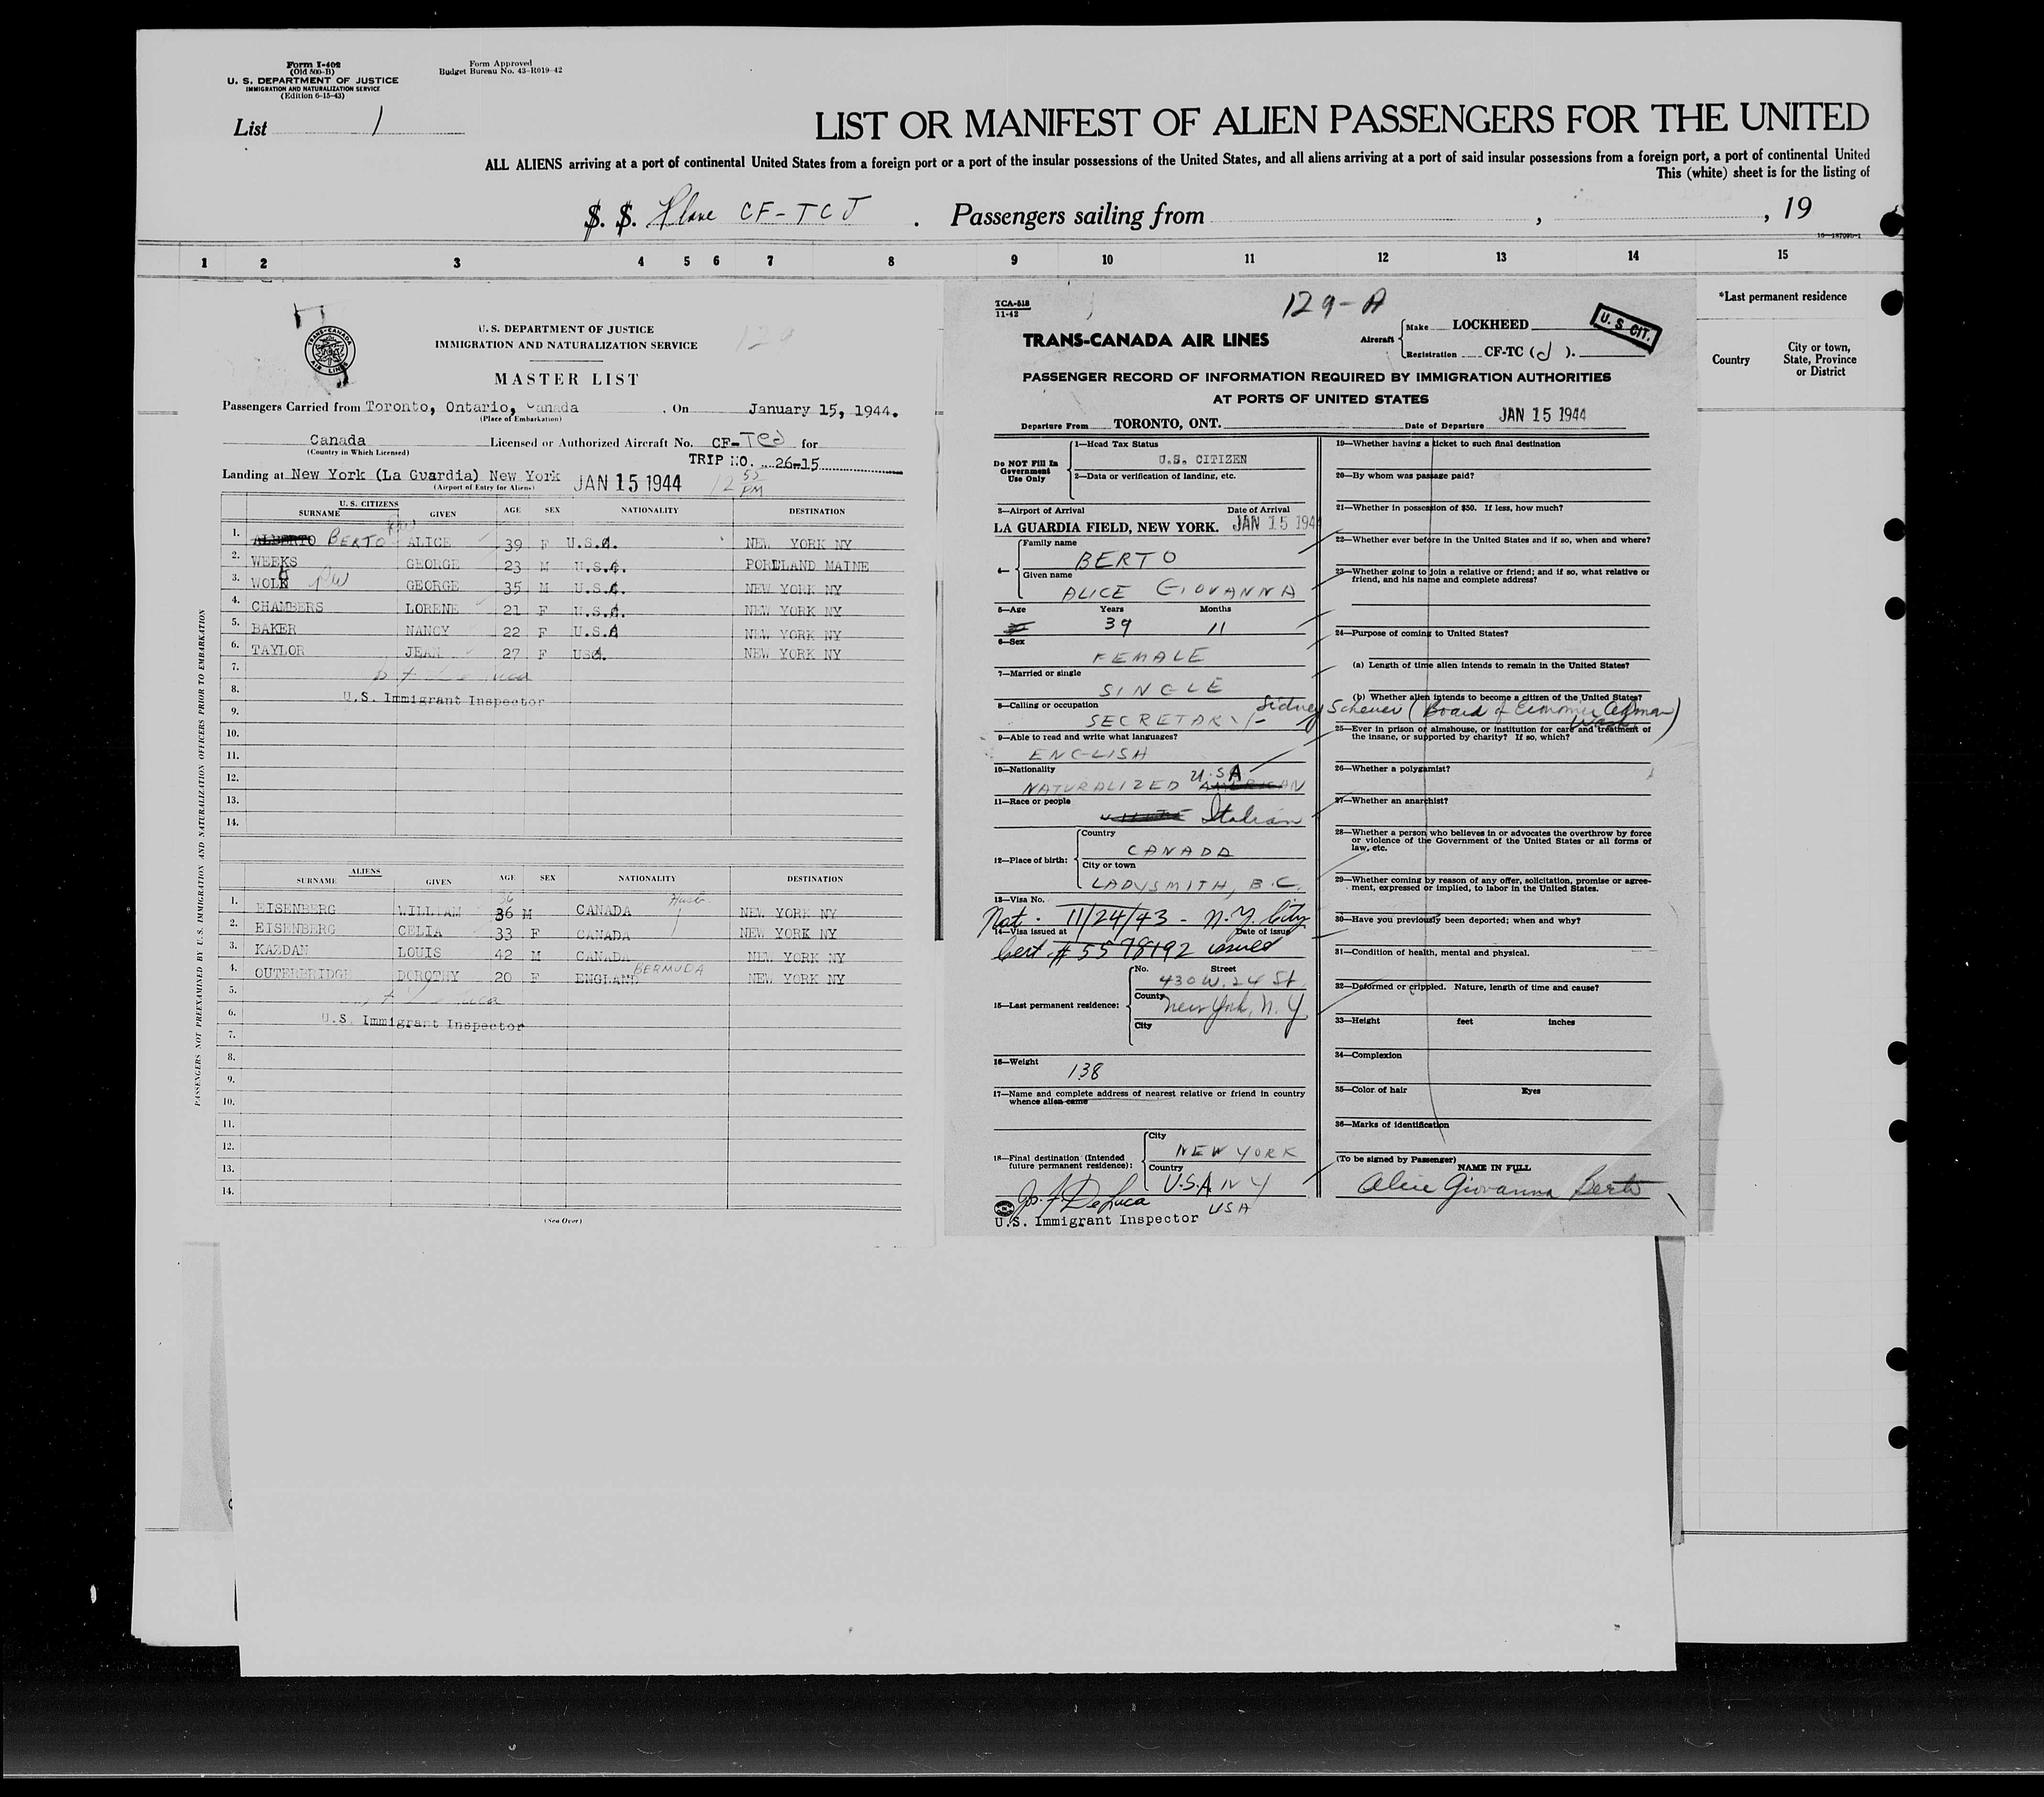 Form I-402
(Old 500-B)
U. S. DEPARTMENT OF JUSTICE
IMMIGRATION AND NATURALIZATION SERVICE
(Edition 6-15-43)
Form Approved
Budget Bureau No. 43-R019-42
List 1
LIST OR MANIFEST OF ALIEN PASSENGERS FOR THE UNITED
ALL ALIENS arriving at a port of continental United States from a foreign port or a port of the insular possessions of the United States, and all aliens arriving at a port of said insular possessions from a foreign port, a port of continental United
This (white) sheet is for the listing of
S. S. Plane CF-TCJ . Passengers sailing from , , 19
1 2 3 4 5 6 7 8 9 10 11 12 13 14 15
*Last permanent residence
Country
City or town,
State, Province
or District
TRANS-CANADA
AIR LINES
U. S. DEPARTMENT OF JUSTICE
IMMIGRATION AND NATURALIZATION SERVICE
MASTER LIST
Passengers Carried from Toronto, Ontario, Canada . On January 15, 1944.
(Place of Embarkation)
Canada Licensed or Authorized Aircraft No. CF-TCJ for
(Country in Which Licensed)
TRIP NO. 26-15
Landing at New York (La Guardia) New York JAN 15 1944 12 55 PM
(Airport of Entry for Aliens)
U. S. CITIZENS
SURNAME GIVEN AGE SEX NATIONALITY DESTINATION
1. ALBERTO BERTO ALICE 39 F U.S.A. NEW YORK NY
2. WEEKS GEORGE 23 M U.S.C. PORTLAND MAINE
3. WOLK GEORGE 35 M U.S.C. NEW YORK NY
4. CHAMBERS LORENE 21 F U.S.C. NEW YORK NY
5. BAKER NANCY 22 F U.S.A NEW YORK NY
6. TAYLOR JEAN 27 F USA. NEW YORK NY
7.
8. U.S. Immigrant Inspector
9.
10.
11.
12.
13.
14.
ALIENS
SURNAME GIVEN AGE SEX NATIONALITY DESTINATION
1. EISENBERG WILLIAM 36 M CANADA NEW YORK NY
2. EISENBERG CELIA 33 F CANADA NEW YORK NY
3. KAZDAN LOUIS 42 M CANADA NEW YORK NY
4. OUTERBRIDGE DOROTHY 20 F ENGLAND BERMUDA NEW YORK NY
5.
6. U.S. Immigrant Inspector
7.
8.
9.
10.
11.
12.
13.
14.
(See Over)
PASSENGERS NOT PREEXAMINED BY U.S. IMMIGRATION AND NATURALIZATION OFFICERS PRIOR TO EMBARKATION
TCA-518
11-42
129-A
TRANS-CANADA AIR LINES
Aircraft
Make LOCKHEED
Registration CF-TC (J).
U. S. CIT.
PASSENGER RECORD OF INFORMATION REQUIRED BY IMMIGRATION AUTHORITIES
AT PORTS OF UNITED STATES
Departure From TORONTO, ONT. Date of Departure JAN 15 1944
Do NOT Fill In
Government
Use Only
1—Head Tax Status
U.S. CITIZEN
2—Data or verification of landing, etc.
3—Airport of Arrival Date of Arrival
LA GUARDIA FIELD, NEW YORK. JAN 15 194
4—
Family name
BERTO
Given name
ALICE GIOVANNA
5—Age Years Months
39 11
6—Sex
FEMALE
7—Married or single
SINGLE
8—Calling or occupation
SECRETARY—
Sidney Scheuer (Board of Economic
9—Able to read and write what languages?
ENGLISH
10—Nationality
NATURALIZED AMERICAN U.S.A
11—Race or people
Italian
12—Place of birth:
Country
CANADA
City or town
LADYSMITH, B.C.
13—Visa No.
Nat. 11/24/43 - N.Y. City
14—Visa issued at Date of issue
Cert. # 5578192 issued
15—Last permanent residence:
No. Street
430 W. 24 St.
County
New York, N.Y.
City
16—Weight
138
17—Name and complete address of nearest relative or friend in country
whence alien came
18—Final destination (Intended
future permanent residence):
City
NEW YORK
Country
U.S.A. N Y
USA
Jos. F. DeLuca
U.S. Immigrant Inspector
19—Whether having a ticket to such final destination
20—By whom was passage paid?
21—Whether in possession of $50. If less, how much?
22—Whether ever before in the United States and if so, when and where?
23—Whether going to join a relative or friend; and if so, what relative or
friend, and his name and complete address?
24—Purpose of coming to United States?
(a) Length of time alien intends to remain in the United States?
(b) Whether alien intends to become a citizen of the United States?
25—Ever in prison or almshouse, or institution for care and treatment of
the insane, or supported by charity? If so, which?
26—Whether a polygamist?
27—Whether an anarchist?
28—Whether a person who believes in or advocates the overthrow by force
or violence of the Government of the United States or all forms of
law, etc.
29—Whether coming by reason of any offer, solicitation, promise or agree-
ment, expressed or implied, to labor in the United States.
30—Have you previously been deported; when and why?
31—Condition of health, mental and physical.
32—Deformed or crippled. Nature, length of time and cause?
33—Height feet inches
34—Complexion
35—Color of hair Eyes
36—Marks of identification
(To be signed by Passenger)
NAME IN FULL
Alice Giovanna Berto